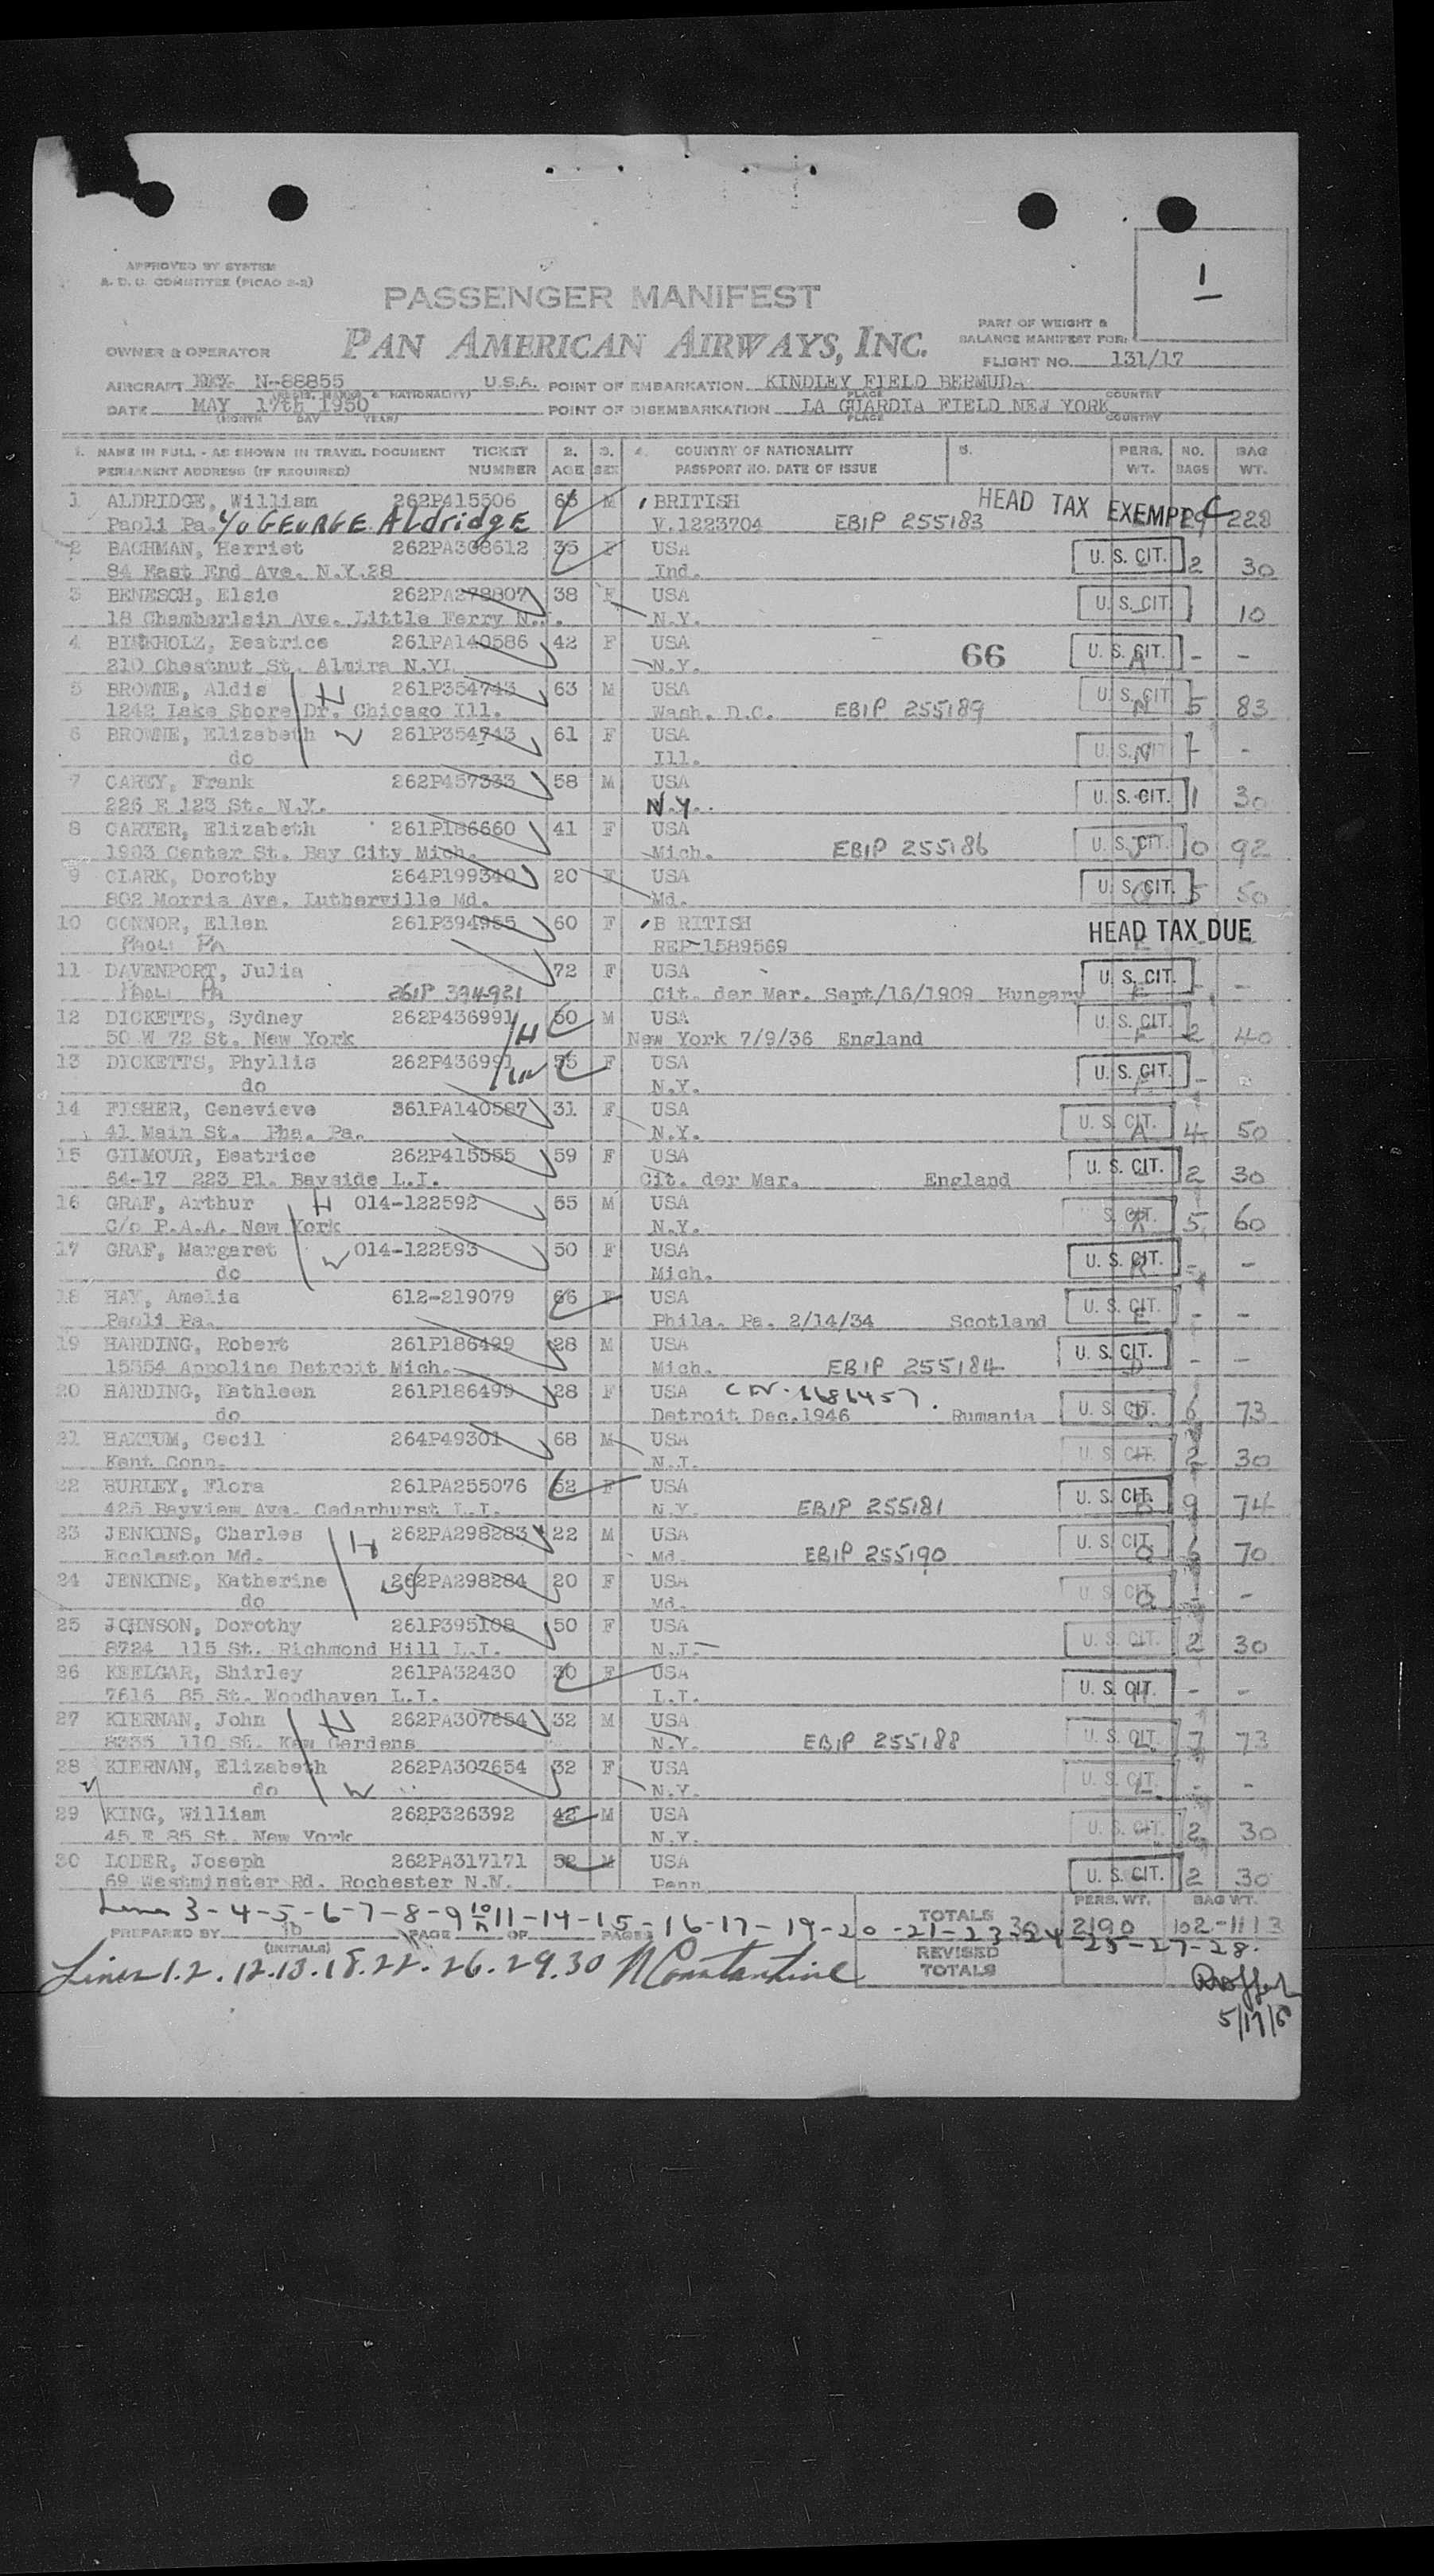 APPROVED BY SYSTEM
A. D. C. COMMITTEE (PICAO 2-2)
1
PASSENGER MANIFEST
PAN AMERICAN AIRWAYS, INC.
PART OF WEIGHT &
BALANCE MANIFEST FOR:
OWNER & OPERATOR
FLIGHT NO. 131/17
AIRCRAFT N-88855 U.S.A. POINT OF EMBARKATION KINDLEY FIELD BERMUDA
DATE MAY 17th 1950 POINT OF DISEMBARKATION LA GUARDIA FIELD NEW YORK
(MONTH DAY YEAR) PLACE COUNTRY
1. NAME IN FULL - AS SHOWN IN TRAVEL DOCUMENT TICKET 2. 3. 4. COUNTRY OF NATIONALITY 5. PERS. NO. BAG
PERMANENT ADDRESS (IF REQUIRED) NUMBER AGE SEX PASSPORT NO. DATE OF ISSUE WT. BAGS WT.
1 ALDRIDGE, William 262P415506 M BRITISH HEAD TAX EXEMPT
Paoli Pa. c/o GEORGE Aldridge V.1223704 EBIP 255183 29 228
2 BACHMAN, Harriet 262PA308612 35 F USA U. S. CIT.
84 East End Ave. N.Y.28 Ind. 2 30
3 BENESCH, Elsie 262PA278807 38 F USA U. S. CIT.
18 Chamberlain Ave. Little Ferry N.J. N.Y. 1 10
4 BIRKHOLZ, Beatrice 261PA140586 42 F USA 66 U. S. CIT.
210 Chestnut St. Almira N.Y. N.Y. - -
5 BROWNE, Aldis H 261P354743 63 M USA U. S. CIT.
1242 Lake Shore Dr. Chicago Ill. Wash. D.C. EBIP 255189 N 5 83
6 BROWNE, Elizabeth W 261P354743 61 F USA U. S. CIT.
do Ill. - -
7 CAREY, Frank 262P457333 58 M USA U. S. CIT.
226 E 123 St. N.Y. N.Y. 1 30
8 CARTER, Elizabeth 261P186660 41 F USA U. S. CIT.
1903 Center St. Bay City Mich. Mich. EBIP 255186 10 92
9 CLARK, Dorothy 264P199340 20 F USA U. S. CIT.
802 Morris Ave. Lutherville Md. Md. 5 50
10 CONNOR, Ellen 261P394955 60 F B RITISH HEAD TAX DUE
PAOLI PA REP-1589569
11 DAVENPORT, Julia 72 F USA U. S. CIT.
PAOLI PA 261P 394921 Cit. der Mar. Sept/16/1909 Hungary - -
12 DICKETTS, Sydney 262P436991 H 50 M USA U. S. CIT.
50 W 72 St. New York New York 7/9/36 England 2 40
13 DICKETTS, Phyllis 262P436991 W 55 F USA U. S. CIT.
do N.Y. -
14 FISHER, Genevieve 361PA140587 31 F USA U. S. CIT.
41 Main St. Pha. Pa. N.Y. A 4 50
15 GILMOUR, Beatrice 262P415555 59 F USA U. S. CIT.
64-17 223 Pl. Bayside L.I. Cit. der Mar. England 2 30
16 GRAF, Arthur H 014-122592 55 M USA S. CIT.
C/o P.A.A. New York N.Y. 5 60
17 GRAF, Margaret W 014-122593 50 F USA U. S. CIT.
do Mich. - -
18 HAY, Amelia 612-219079 66 F USA U. S. CIT.
Paoli Pa. Phila. Pa. 2/14/34 Scotland E - -
19 HARDING, Robert 261P186499 28 M USA U. S. CIT.
15554 Appoline Detroit Mich. Mich. EBIP 255184 - -
20 HARDING, Kathleen 261P186499 28 F USA
do Detroit Dec.1946 Rumania U. S. CIT. 6 73
21 Cecil 264P49301 68 M USA U. S. CIT.
Kent Conn. N.J. 2 30
22 HURLEY, Flora 261PA255076 52 F USA U. S. CIT.
425 Bayview Ave. Cedarhurst L.I. N.Y. EBIP 255181 9 74
23 JENKINS, Charles H 262PA298283 22 M USA U. S. CIT.
Eccleston Md. Md. EBIP 255190 6 70
24 JENKINS, Katherine W 262PA298284 20 F USA U. S. CIT.
do Md. - -
25 JOHNSON, Dorothy 261P395108 50 F USA U. S. CIT.
8724 115 St. Richmond Hill L.I. N.J. 2 30
26 KEELGAR, Shirley 261PA32430 30 F USA U. S. CIT.
7616 85 St. Woodhaven L.I. L.I. - -
27 KIERNAN, John H 262PA307654 32 M USA U. S. CIT.
8335 110 St. Kew Gardens N.Y. EBIP 255188 7 73
28 KIERNAN, Elizabeth 262PA307654 32 F USA U. S. CIT.
do W N.Y. - -
29 KING, William 262P326392 42 M USA U. S. CIT.
45 E 85 St. New York N.Y. 2 30
30 LODER, Joseph 262PA317171 52 M USA U. S. CIT.
69 Westminster Rd. Rochester N.N. Penn 2 30
Lines 3-4-5-6-7-8-9 10 11-14-15-16-17-19-20-21-23-24
TOTALS PERS. WT. 2190 BAG WT. 102-1113
PREPARED BY PAGE OF PAGES
(INITIALS) REVISED TOTALS 25-27-28.
Lines 1.2.12.13.18.22.26.29.30 N Constantine
5/17/5